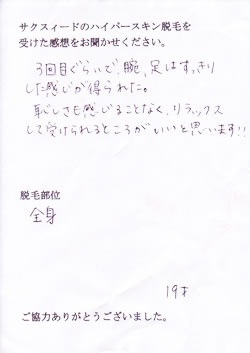 サクスィードのハイパースキン脱毛を
受けた感想をお聞かせください。
3回目ぐらいで、腕、足はすっきり
した感じが得られた。
恥しさも感じることなく、リラックス
して受けられるところがいいと思います!!
脱毛部位
全身
19才
ご協力ありがとうございました。